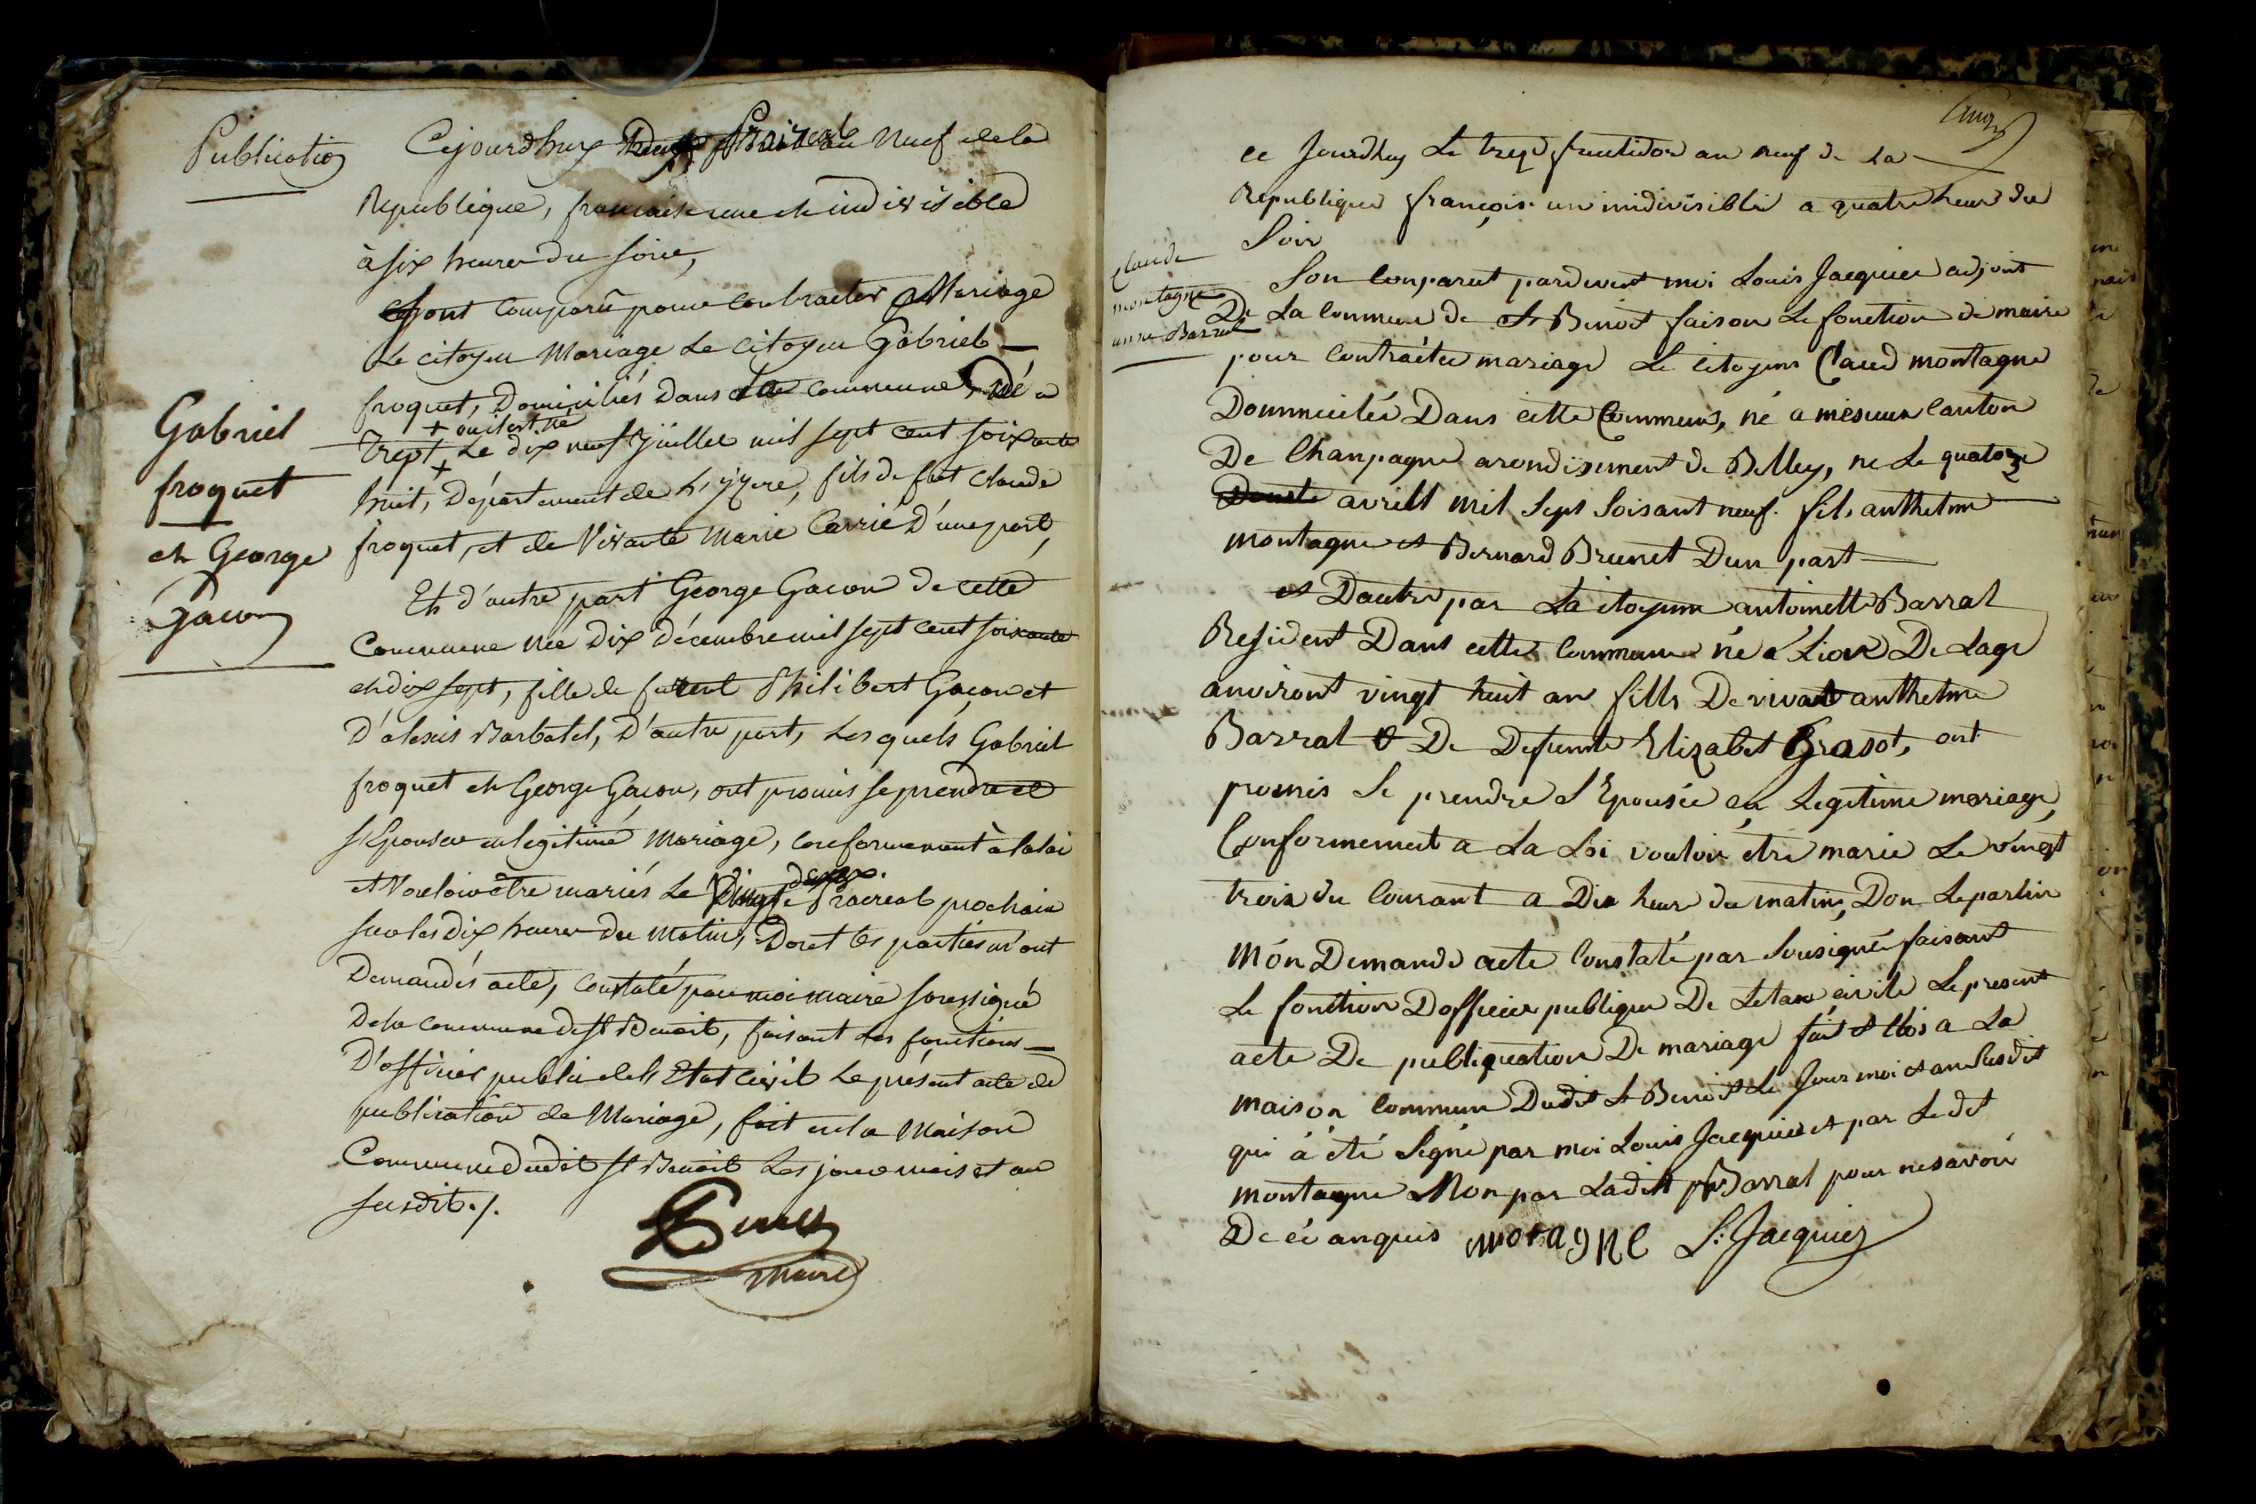 Publication
Cejourdhuy prairial an Neuf de la
Republique, francaise une et indivisible
à six heures du soire,
sont comparû pour contracter Mariage
Le citoyen Mariage Le citoyen Gabriel
froquet, Domiciliés dans cette commune, Né a
+ où il est né
Trept, Le dix neuf Juillet mil sept cent soixante
huit, Département de L'izere, fils de fut Claude
froquet, et de Vivante Marie Carrié D'une part,
Gabriel
froquet
et George
Gacon
Et d'autre part George Gacon de cette
Commune née Dix décembre mil sept cent soixante
et dix sept, fille de furent Philibert Gacon et
D'alexis Barbatel, D'autre part, Lesquels Gabriel
froquet et George Gacon, ont promis se prendre et
s'Epouser en legitime Mariage, conformement à la loi
et Vouloir être mariés Le Vingt deux Prairial prochain
sur les dix heures du Matin, Dont les parties m'ont
Demandés acte, constaté par moi maire soussigné
De la commune de St Benoit, faisant les fonctions
D'officier public de l'Etat Civil Le présent acte de
publication de Mariage, fait en la Maison
Commune dudit St Benoit Les jour mois et an
susdit ./.
maire
ce Jourdhuy Le treze fructidor an neuf de La
Republique françois un indivisible a quatre heur du
Soir
Claude
montagne
anne Barral
Son Conparut pardevent moi Louis Jacquier adjoint
De La Commune de St Benoit faison Le fonction de maire
pour Contracter mariage Le Citoyens Claud montagne
Dommicilés Dans cette Commune, né a mesieux Canton
De Chanpagne arondisement de Belley, ne Le quatorze
avrill mil Sept Soisant neuf. fils anthelme
montagne et Bernard Brunet Dun part
et Dautre par La citoyenne antoinette Barral
Resident Dans cette Commune né a Lion De Lage
anviront vingt huit an fills De vivant anthelme
Barral & De Defunte Elizabet Grasot, ont
promis Se prendre S'Epousée en Legitime mariage,
Conformement a La Loi vouloir étre marie Le vingt
trois du Courant a Dix heur du matin, Don Le partin
món Demande acte Constaté par Sousigné faisant
Le fonction Dofficier publique De Letax civile Le present
acte De publiquation De mariage fait et Clos a La
maison Commun Dudit St Benoit Le Jour moi et an Susdit
qui á été Signe par moi Louis Jacquier et par Le dit
montagne Non par Ladite Barral pour ne savoir
De cé anquis motagne L: Jacquier